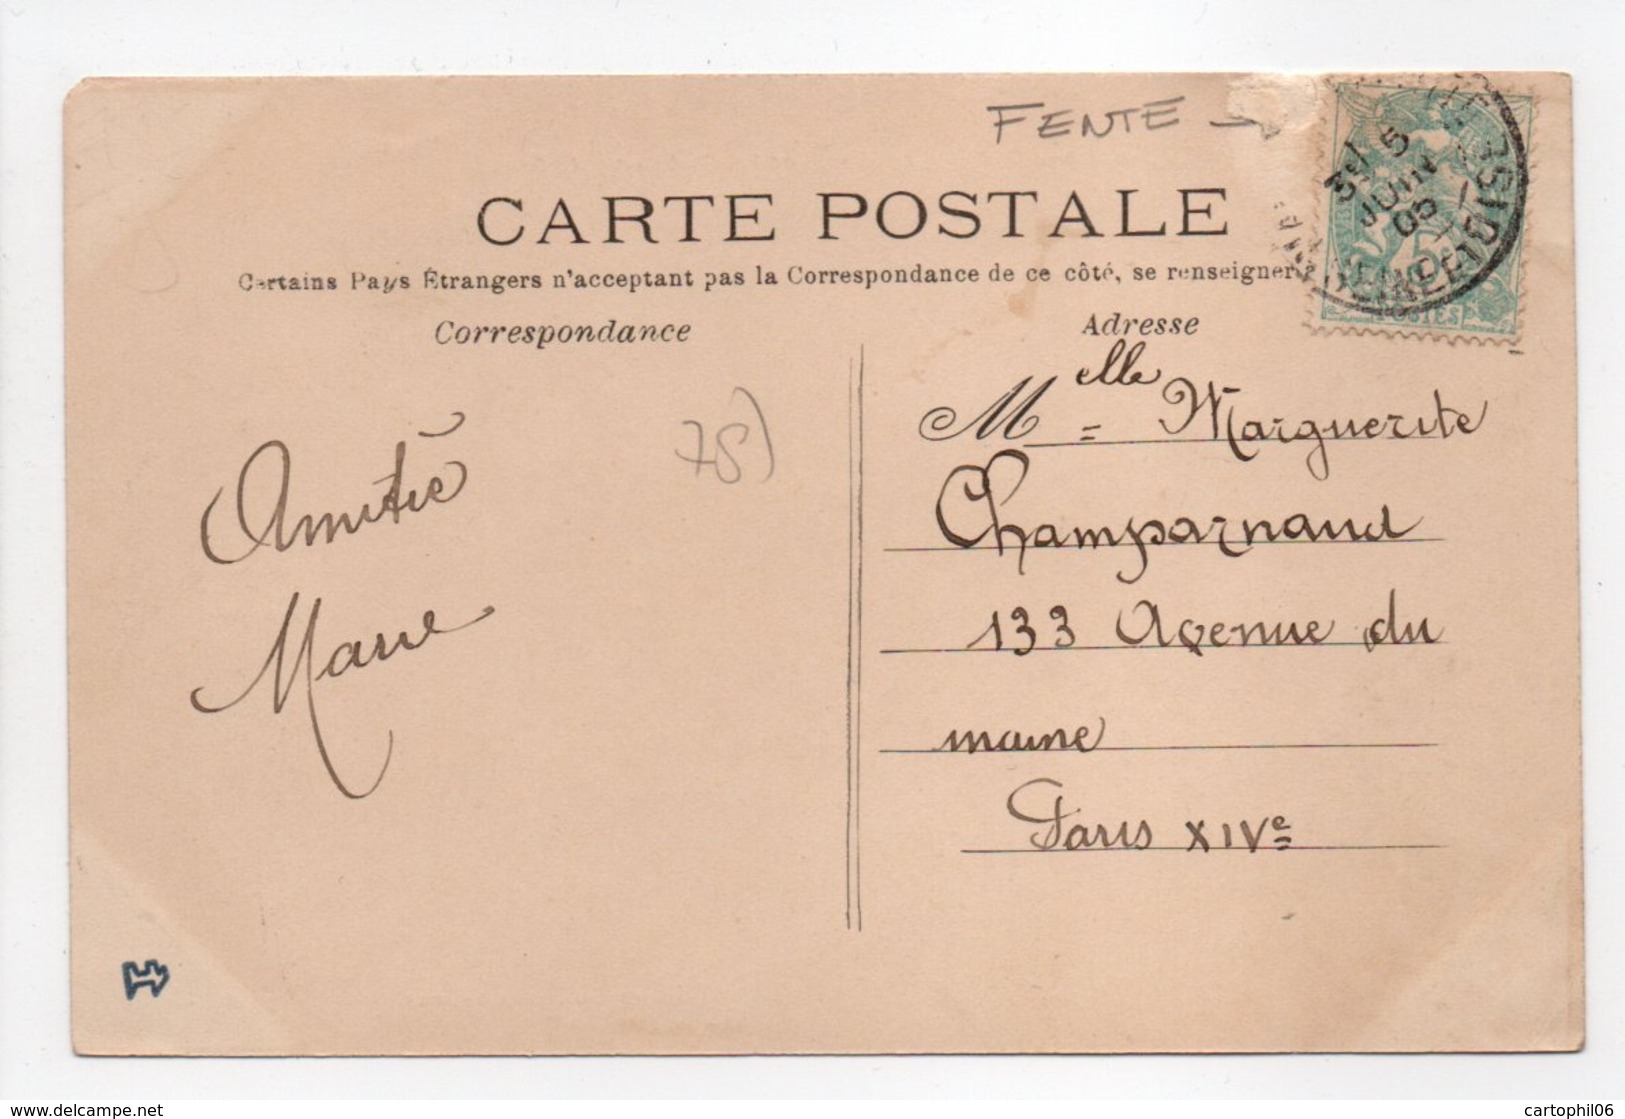 FENTE →
CARTE POSTALE
Certains Pays Étrangers n'acceptant pas la Correspondance de ce côté, se renseigner à
Correspondance
Adresse
75)
Amitié
Marie
Melle = Marguerite
Champarnaud
133 Avenue du
maine
Paris XIVe
5
JUIN
05
5c
POSTES
delcampe.net
cartophil06